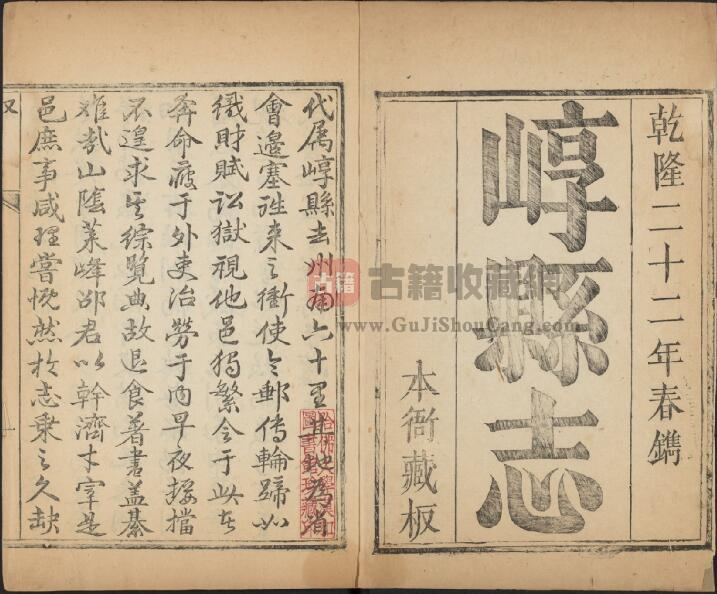 乾隆二十二年春鐫
崞縣志
本衙藏板
代属崞縣去州南六十里其地為省
會邊塞往来之衝使令郵傳輪蹄如
織財賦訟獄視他邑獨繁令于此者
奔命疲于外吏治勞于内早夜摒擋
不遑求其綜覽典故退食著書盖綦
难哉山陰莱峰邵君以幹濟才宰是
邑庶事咸理嘗慨然於志乗之久缺
古籍
古籍收藏网
www.GuJiShouCang.com